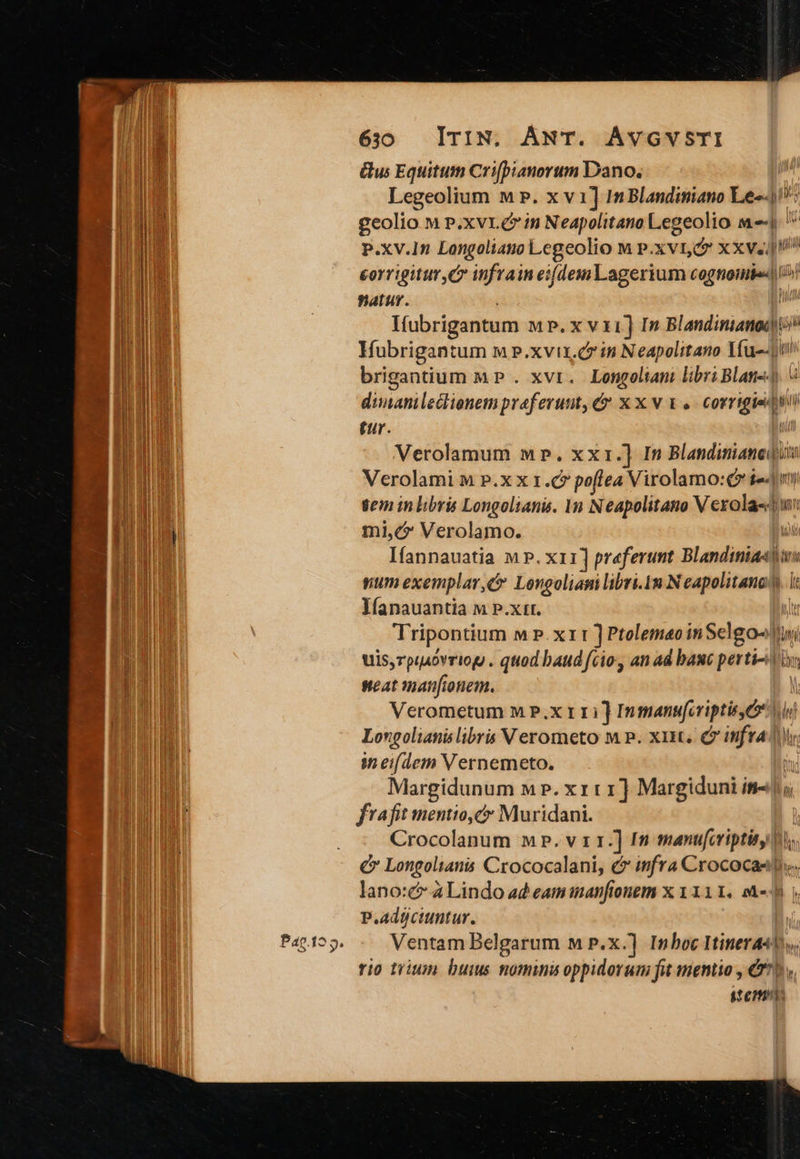 630 ITIN. ANT. AVGVSTI
ctus Equitum Crispianorum Dano.
Legeolium M P. XVI] In Blandiniano Le-
geolio M P. XVI. & in Neapolitano Legeolio M
P. XV. In Longoliano Legeolio M P. XVI, & XXV.
corrigitur, & infra in eisdem Lagerium cognomi-
natur.
Isubrigantum M P. XVII] In Blandiniano
Isubrigantum M P. XVII. & in Neapolitano Isu-
brigantium M P. XVI. Longoliani libri Blan-
diniani lectionem praeferunt, & XXVI. corrigi-
tur.
Verolamum M P. XXI.] In Blandiniano
Verolami M P. XXI. & postea Virolamo: & i-
tem in libris Longolianis. In Neapolitano Verola-
mi, & Verolamo.
Isannauatia M P. XII] praeferunt Blandinia-
num exemplar, & Longoliani libri. In Neapolitano
Isanauantia M P. XII.
Tripontium M P. XII] Ptolemaeo in Selgo-
uis, τριμόντιον. quod haud scio, an ad hanc perti-
neat mansionem.
Verometum M P. XIII] In manuscriptis, &
Longolianis libris Verometo M P. XIII. & infra
in eisdem Vernemeto.
Margidunum M P. XIIII] Margiduni in-
fra fit mentio, & Muridani.
Crocolanum M P. VII.] In manuscriptis,
& Longolianis Crococalani, & infra Crococa-
lano: & à Lindo ad eam mansionem XIIII. M
P. adijciuntur.
Pag. 109. Ventam Belgarum M P. X.] In hoc Itinera-
rio trium huius nominis oppidorum fit mentio, &
item